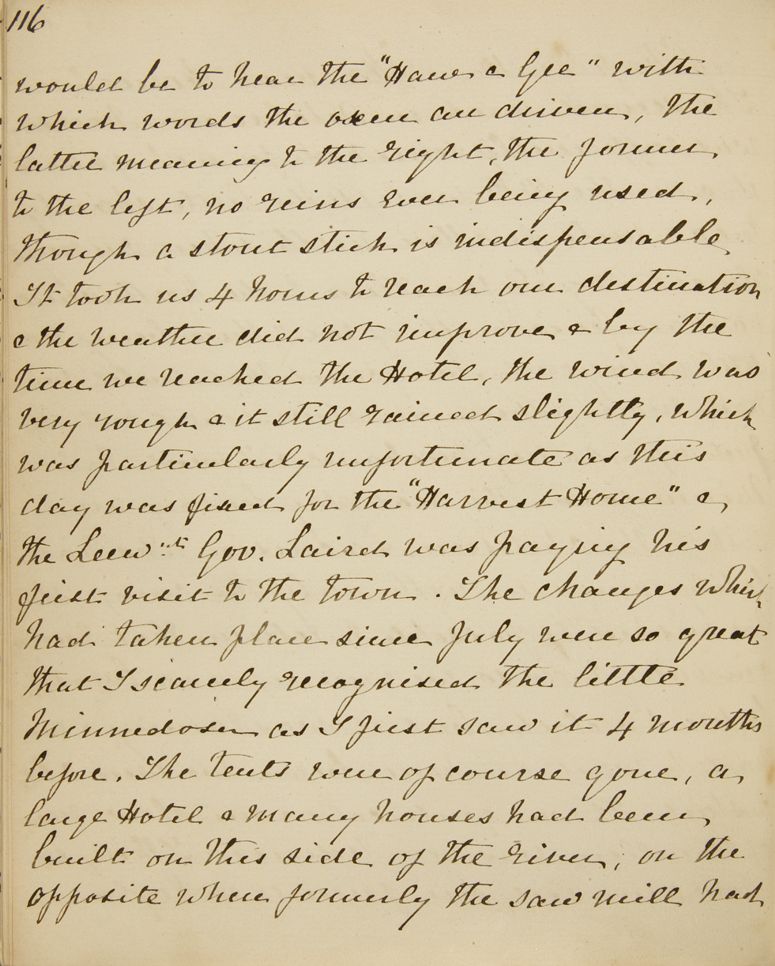 116
would be to hear the "Haw & Gee" with
which words the oxen are driven, the
latter meaning to the right, the former
to the left, no reins ever being used,
though a stout stick is indispensable.
It took us 4 hours to reach our destination
& the weather did not improve & by the
time we reached the Hotel, the wind was
very rough & it still rained slightly, which
was particularly unfortunate as this
day was fixed for the "Harvest Home" &
the Gov. Laird was paying his
first visit to the town. The changes which
had taken place since July were so great
that I scarcely recognised the little
Minnedosa as I first saw it 4 months
before. The tents were of course gone, a
large Hotel & many houses had been
built on this side of the river, on the
opposite where formerly the saw mill had